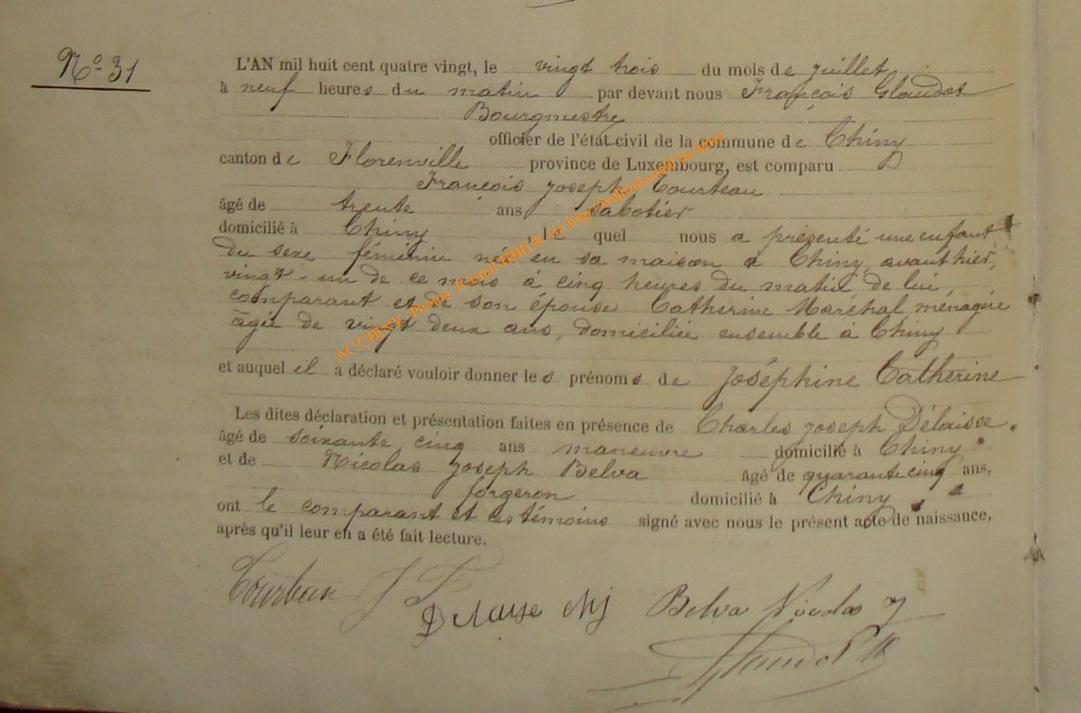 No 31
L'AN mil huit cent quatre vingt, le vingt trois du mois de juillet
à neuf heures du matin par devant nous François Glaudot
Bourgmestre
officier de l'état civil de la commune de Chiny
canton de Florenville province de Luxembourg, est comparu
François Joseph Tourteau
âgé de trente ans sabotier
domicilié à Chiny le quel nous a présenté une enfant
du sexe féminin né en sa maison à Chiny, avant hier,
vingt-un de ce mois à cinq heures du matin de lui,
comparant et de son épouse Catherine Maréchal ménagère
âgée de vingt deux ans, domiciliée ensemble à Chiny
et auquel il a déclaré vouloir donner les prénoms de Joséphine Catherine
Les dites déclaration et présentation faites en présence de Charles Joseph Délaisse
âgé de soixante cinq ans maneuvre domicilié à Chiny
et de Nicolas Joseph Belva âgé de quarante cinq ans,
forgeron domicilié à Chiny
ont le comparant et ces témoins signé avec nous le présent acte de naissance,
après qu'il leur en a été fait lecture.
J F
Delaisse chj Belva Nicolas j
AC CHINY- Photos